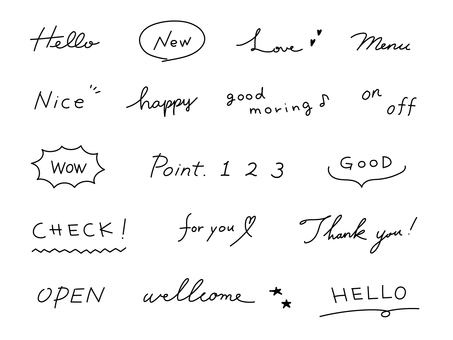 Hello
New
Love
Menu
Nice
happy
good
moring
on
off
WOW
Point. 1 2 3
GOOD
CHECK!
for you
Thank you!
OPEN
wellcome
HELLO